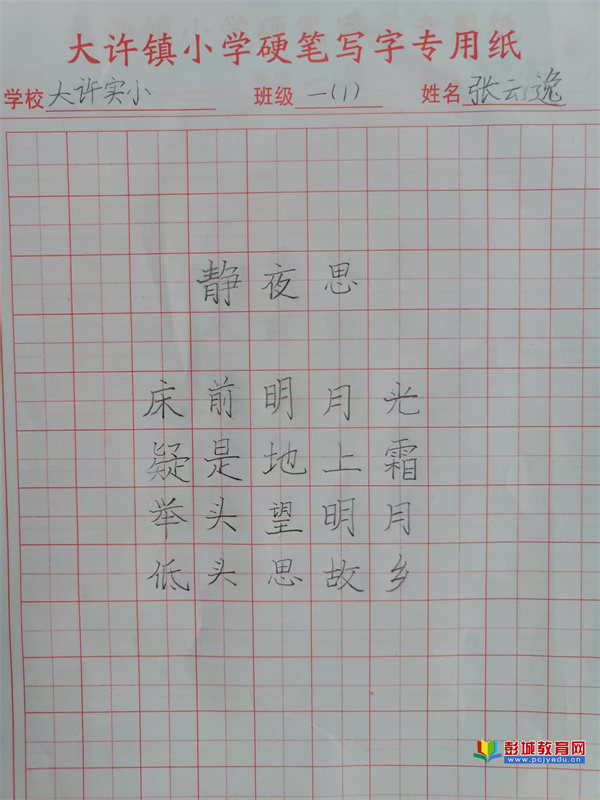 大许镇小学硬笔写字专用纸
学校 大许实小 班级 一(1) 姓名 张云逸
静夜思
床前明月光
疑是地上霜
举头望明月
低头思故乡
彭城教育网
www.pcjyedu.cn